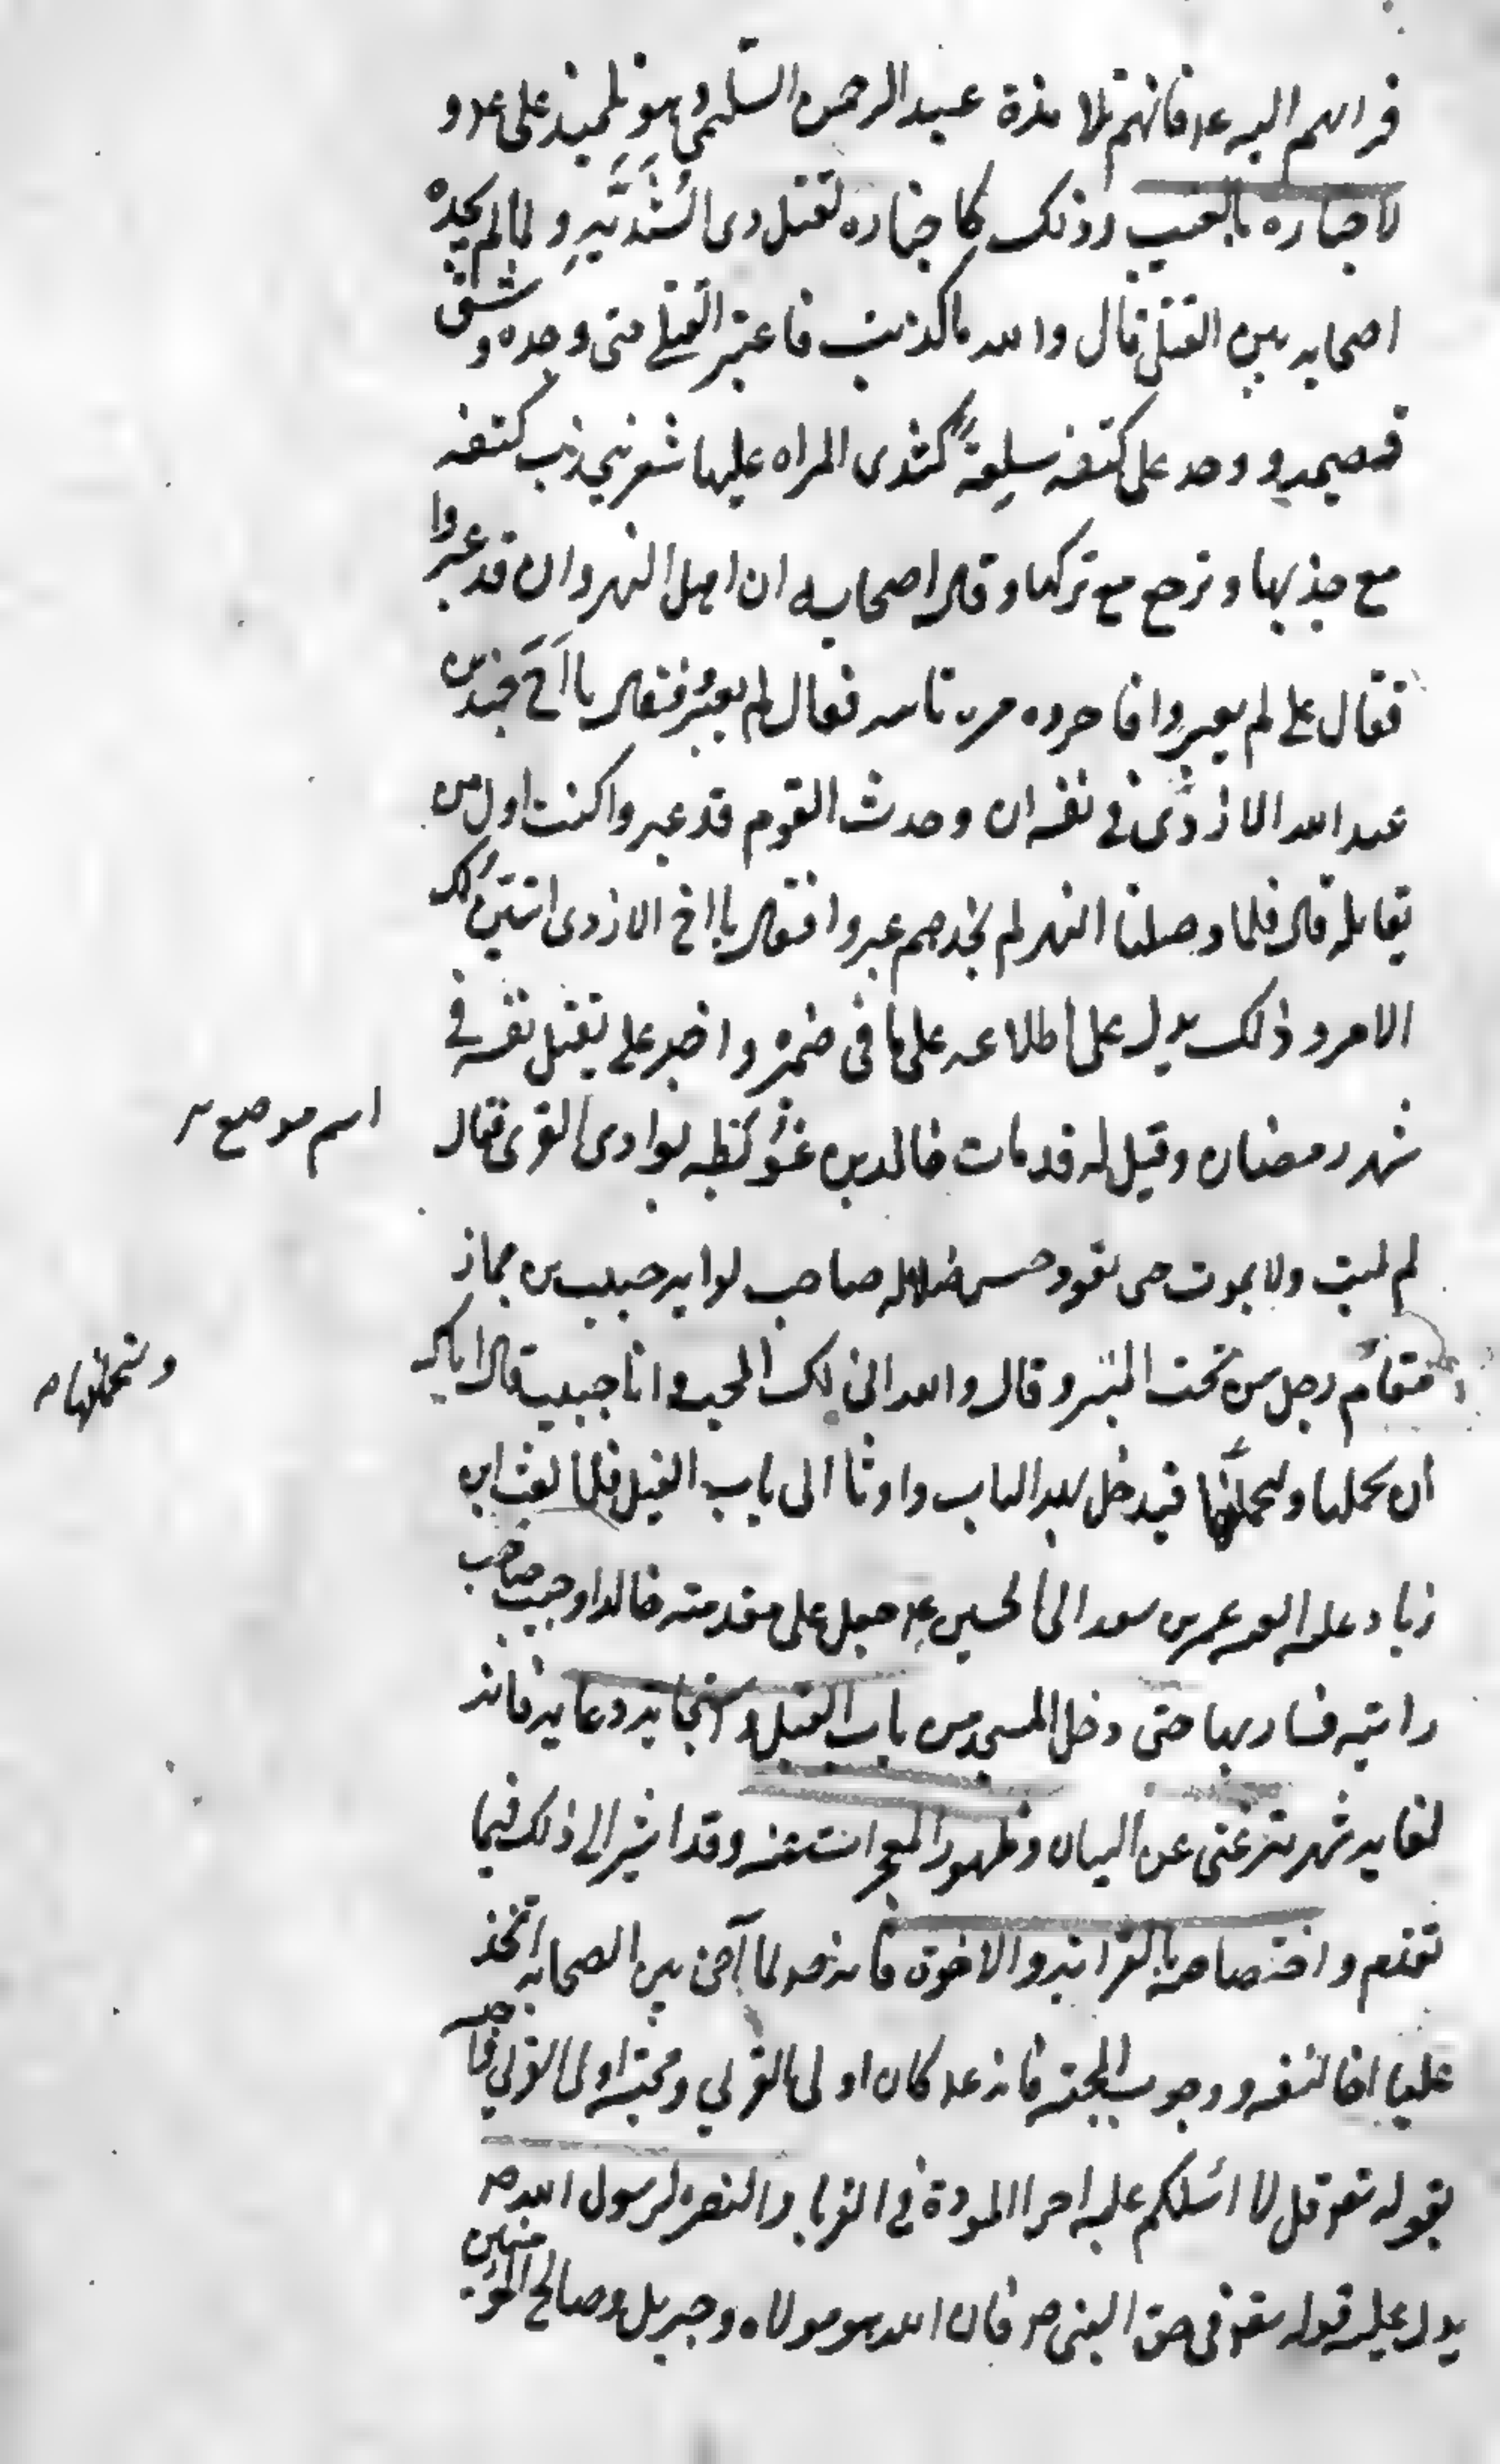 قراتهم اليه عم فانهم تلامذة عبد الرحمن السلمي وهو تلميذ علي عم و
لاخباره بالغيب وذلك كاخباره لقتل ذى الثَّدَيَّهِ و لما لم يجده
اصحابه بين القتلى قال والله ما كذبت فاعتبر القتلى حتى وجده وشق
قميصه و وجد على كتفه سلعةً كثدى المراه عليها شعر ينجذب كتفه
مع جذبها و ترجع مع تركها وقال اصحابه ان اهل النهروان قد عبروا
فقال علي لم يعبروا فاخبروه مره ثانيه فقال لم يعبُرُ فقال يا اَخَ جندب بن
عبد الله الازدى في نفسه ان وجدت القوم قد عبروا كنت اول من
يقاتله قال فلما وصلنا النهر لم نجدهم عبروا فقال يا اخ الازدى اتبين لك
الامر و ذلك يدل على اطلاعه على ما فى ضميره و اخبر علي بقتل نفسه في
شهر رمضان وقيل له قد مات خالد بن عُوَيْطه بوادى القرى فقال
اسم موضع
لم يمت ولا يموت حتى يقود جيش ضلاله صاحب لوايه حبيب بن جماز
فقام رجل من تحت المنبر و قال والله انى لك لمحب و انا حبيب قال اياك
و ستحملنها
ان تحملها و لتحملنَّها فتدخل بهذا الباب و اومأ الى باب الفيل فلما بعث ابن
زياد عليه اللعنه عمر بن سعد الى الحسين عم جعل على مقدمته خالدا وحبيب صاحب
رايته فسار بها حتى دخل المسجد من باب الفيل و استجابه دعايه فانه
لغايه شهرته غنى عن البيان و ظهور المعجزات عنه و قد اشير الى ذلك فيما
تقدم و اختصاصه بالقرابه و الاخوة فانه صم لما آخى بين الصحابه اتخذ
عليا اخا لنفسه و وجوب المحبة فانه عم كان اولى القربى و محبة اولى القربى واجبه
بقوله تعو قل لا اسئلكم عليه اجرا الا المودة في القربى و النصره لرسول الله صم
يدل عليه قوله تعو فى حق النبى صم فان الله هو مولاه و جبريل و صالح المؤمنين